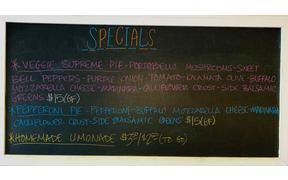 SPECIALS
*VEGGIE SUPREME PIE-PORTOBELLO MUSHROOMS-SWEET
BELL PEPPERS-PURPLE ONION-TOMATO-KALAMATA OLIVE-BUFFALO
MOZZARELLA CHEESE-MARINARA-CAULIFLOWER CRUST-SIDE BALSAMIC
GREENS $15(GF)
*PEPPERONI PIE-PEPPERONI-BUFFALO MOZZARELLA CHEESE-MARINARA
CAULIFLOWER CRUST-SIDE BALSAMIC GREENS $15(GF)
*HOMEMADE LIMONADE (TO GO)